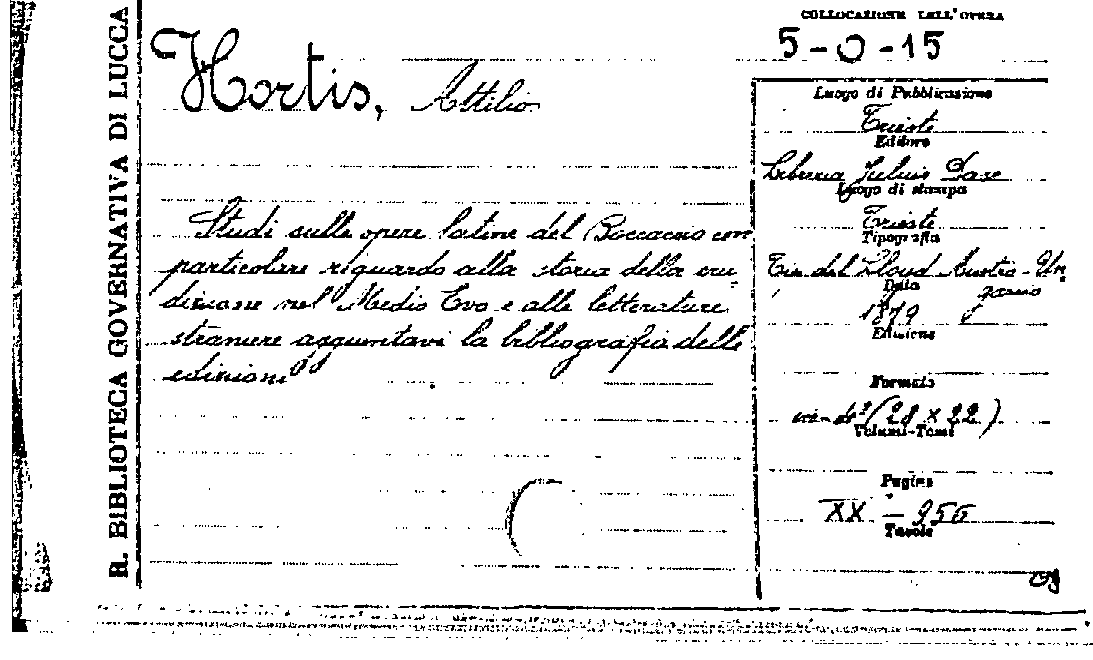 R. BIBLIOTECA GOVERNATIVA DI LUCCA
COLLOCAZIONE DELL'OPERA
5-0-15
Hortis, Attilio
Studi sulle opere latine del Boccaccio con
particolare riguardo alla storia della eru-
dizione nel Medio Evo e alle letterature
straniere aggiuntavi la bibliografia delle
edizioni
Luogo di Pubblicazione
Trieste
Editore
Libreria Julius Dase
Luogo di stampa
Trieste
Tipografia
Tip. del Lloyd Austro-Un
garico
Data
1879
Edizione
Formato
in-4º (28 x 22)
Volumi-Tomi
Pagine
XX - 956
Tavole